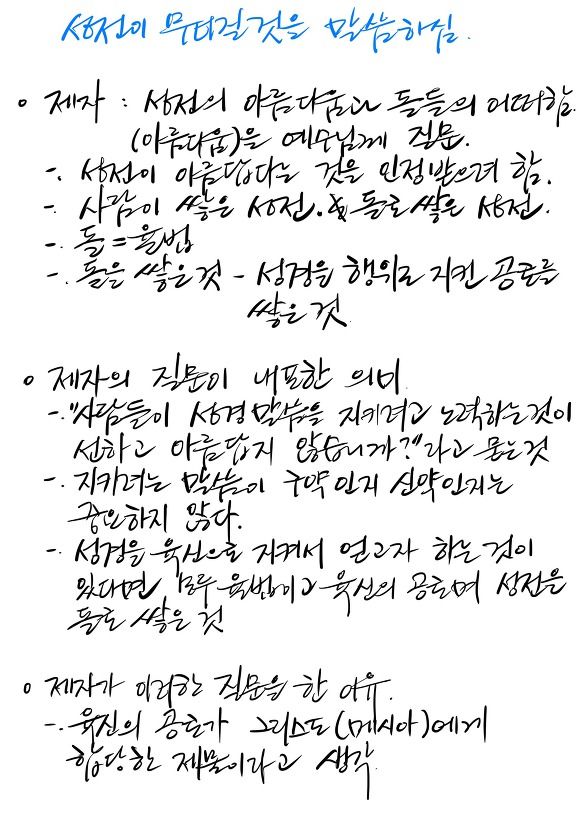 성전이 무너질것을 말씀하심.
○ 제자 : 성전의 아름다움과 돌들의 어떠함.
(아름다움)을 예수님께 질문.
-. 성전이 아름답다는 것을 인정받으려 함.
-. 사람이 쌓은 성전. & 돌로 쌓은 성전.
-. 돌 = 율법
-. 돌을 쌓은것 - 성경을 행위로 지킨 공로를
쌓은 것
○ 제자의 질문이 내포한 의미
-. "사람들이 성경말씀을 지키려고 노력하는것이
선하고 아름답지 않습니까?"라고 묻는것
-. 지키려는 말씀이 구약인지 신약인지는
중요하지 않다.
-. 성경을 육신으로 지켜서 얻고자 하는것이
있다면 모두 율법이고 육신의 공로며 성전을
돌로 쌓은 것
○ 제자가 이러한 질문을 한 이유.
-. 육신의 공로가 그리스도(메시아)에게
합당한 제물이라고 생각